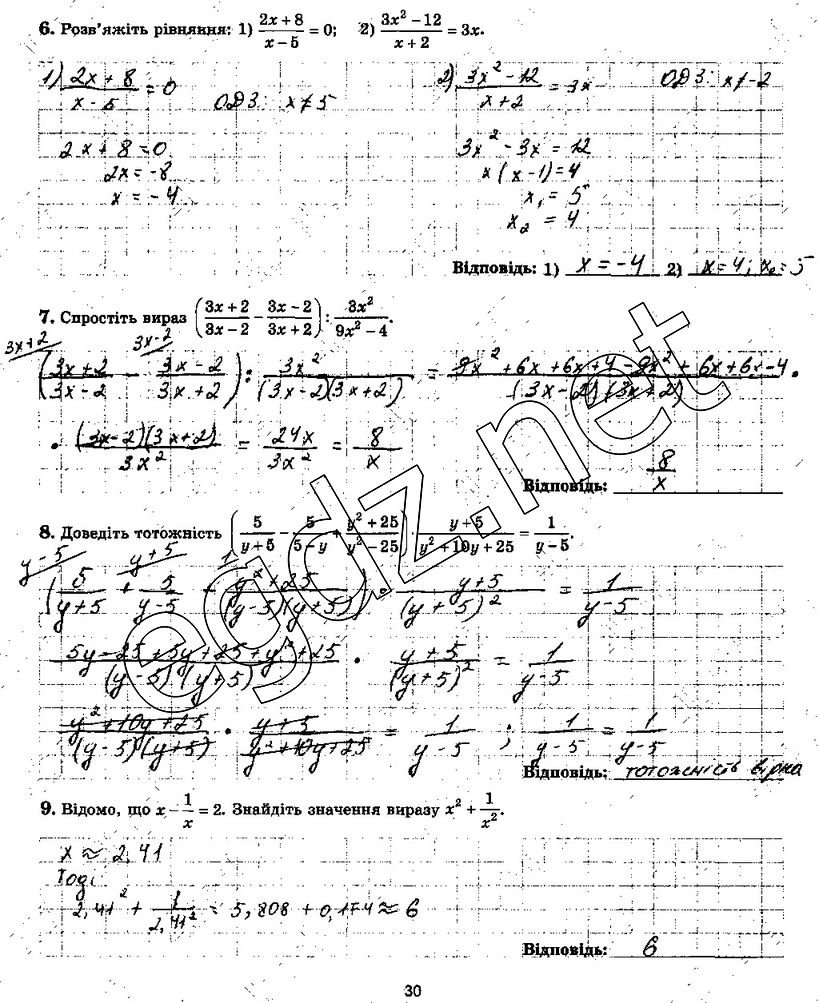 6. Розв'яжіть рівняння: 1) (2x + 8)/(x − 5) = 0; 2) (3x² − 12)/(x + 2) = 3x.
1) (2x + 8)/(x − 5) = 0 ОДЗ: x ≠ 5
2x + 8 = 0
2x = −8
x = −4
2) (3x² − 12)/(x + 2) = 3x ОДЗ: x ≠ −2
3x² − 3x = 12
x(x − 1) = 4
x₁ = 5
x₂ = 4
Відповідь: 1) x = −4 2) x = 4; x₂ = 5
7. Спростіть вираз ((3x + 2)/(3x − 2) − (3x − 2)/(3x + 2)) : 3x²/(9x² − 4).
3x + 2 3x − 2
((3x + 2)/(3x − 2) − (3x − 2)/(3x + 2)) : 3x²/((3x − 2)(3x + 2)) = (9x² + 6x + 6x + 4 − 9x² + 6x + 6x − 4)/((3x − 2)(3x + 2)) •
• ((3x − 2)(3x + 2))/3x² = 24x/3x² = 8/x
Відповідь: 8/x
8. Доведіть тотожність (5/(y + 5) − 5/(5 − y) + (y² + 25)/(y² − 25)) · (y + 5)/(y² + 10y + 25) = 1/(y − 5).
y − 5 y + 5 1
(5/(y + 5) + 5/(y − 5) + (y² + 25)/((y − 5)(y + 5))) • (y + 5)/(y + 5)² = 1/(y − 5)
(5y − 25 + 5y + 25 + y² + 25)/((y − 5)(y + 5)) • (y + 5)/(y + 5)² = 1/(y − 5)
(y² + 10y + 25)/((y − 5)(y + 5)) • (y + 5)/(y² + 10y + 25) = 1/(y − 5) ; 1/(y − 5) = 1/(y − 5)
Відповідь: тотожність вірна
9. Відомо, що x − 1/x = 2. Знайдіть значення виразу x² + 1/x².
x ≈ 2,41
Тоді
2,41² + 1/2,41² = 5,808 + 0,174 ≈ 6
Відповідь: 6
30
egdz.net